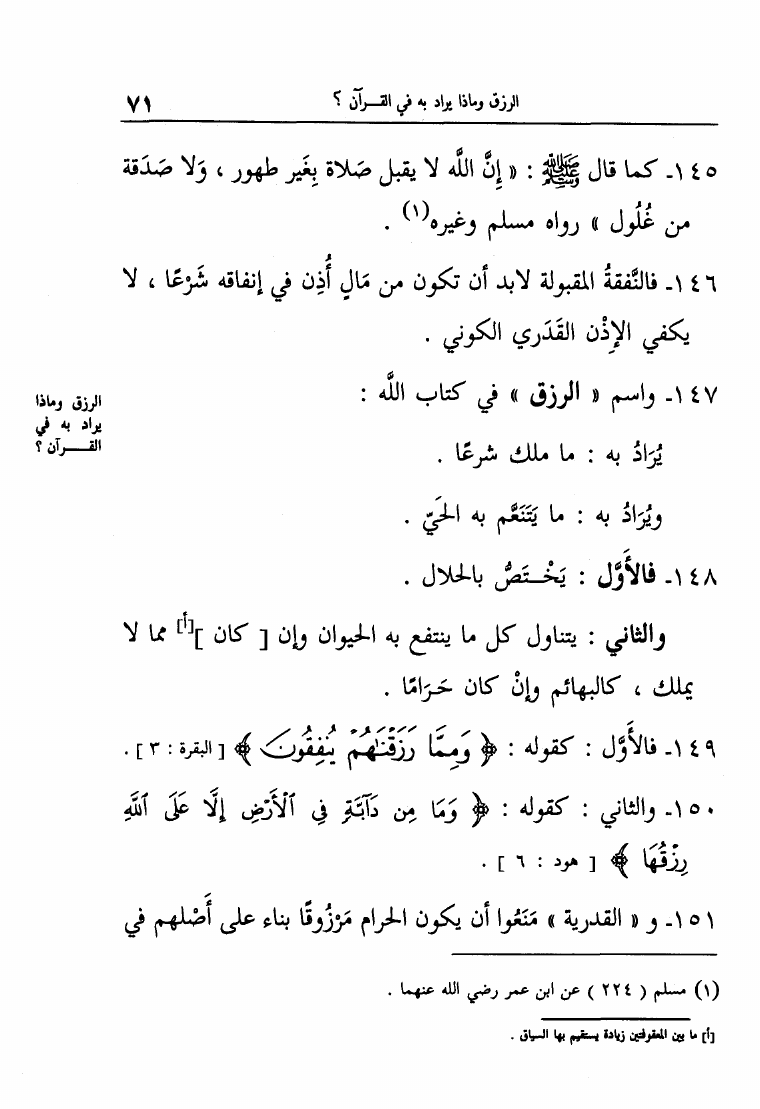 الرزق وماذا يراد به في القـــرآن ؟ ٧١
١٤٥ـ كما قال ﷺ : « إِنَّ اللَّه لا يقبل صَلاة بِغَير طهور ، وَلا صَدَقة
من غُلُول » رواه مسلم وغيره(١) .
١٤٦ـ فالنَّفقةُ المقبولة لابد أن تكون من مَالٍ أُذِن في إنفاقه شَرْعًا ، لا
يكفي الإِذْن القَدَري الكوني .
١٤٧ـ واسم « الرزق » في كتاب اللَّه :
الرزق وماذا
يراد به في
القـــرآن ؟
يُرَادُ به : ما ملك شرعًا .
ويُرَادُ به : ما يَتَنَعَّم به الحَيّ .
١٤٨ـ فالأَوَّل : يَخْـتَـصُّ بالحلال .
والثاني : يتناول كل ما ينتفع به الحيوان وإن [ كان ][أ] مما لا
يملك ، كالبهائم وإنْ كان حَرَامًا .
١٤٩ـ فالأَوَّل : كقوله : ﴿ وَمِمَّا رَزَقْنَٰهُمْ يُنفِقُونَ ﴾ [ البقرة : ٣ ] .
١٥٠ـ والثاني : كقوله : ﴿ وَمَا مِن دَآبَّةٍ فِي ٱلْأَرْضِ إِلَّا عَلَى ٱللَّهِ
رِزْقُهَا ﴾ [ هود : ٦ ] .
١٥١ـ و « القدرية » مَنَعُوا أن يكون الحرام مَرْزُوقًا بناء على أَصْلهم في
(١) مسلم ( ٢٢٤ ) عن ابن عمر رضي الله عنهما .
[أ] ما بين المعقوفتين زيادة يستقيم بها السياق .